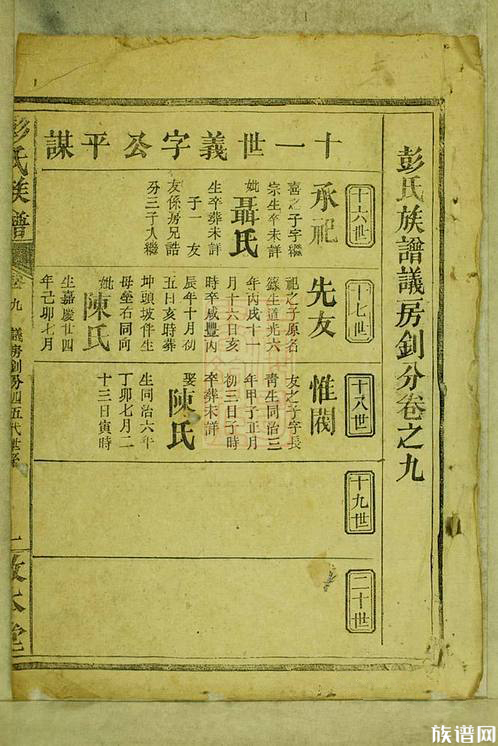 彭氏族譜議房釗分卷之九
十一世義字公平謀
十六世
承祀
喜之子字繼
宗生卒未詳
妣聶氏
生卒葬未詳
子一 友
友係房兄誥
分三子入繼
十七世
先友
祀之子原名
蘇生道光六
年丙戌十一
月十六日亥
時卒咸豐丙
辰年十月初
五日亥時葬
坤頭坡伴生
母塋石同向
妣陳氏
生嘉慶廿四
年己卯七月
十八世
惟閣
友之子字長
青生同治三
年甲子正月
初三日子時
卒葬未詳
娶陳氏
生同治六年
丁卯七月二
十三日寅時
十九世
二十世
彭氏族譜
卷九 議房釗分四五代世系
敬本堂
族谱网
www.zupu.cn